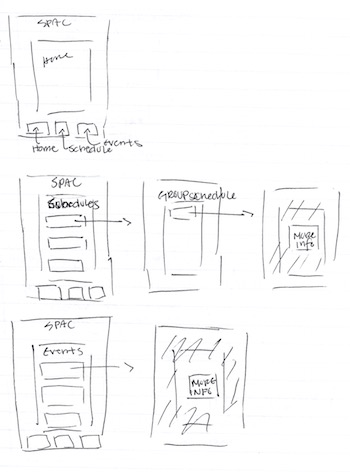 SPAC
Home
Home schedule events
SPAC
Schedules
GROUP schedule
MORE
INFO
SPAC
Events
MORE
INFO